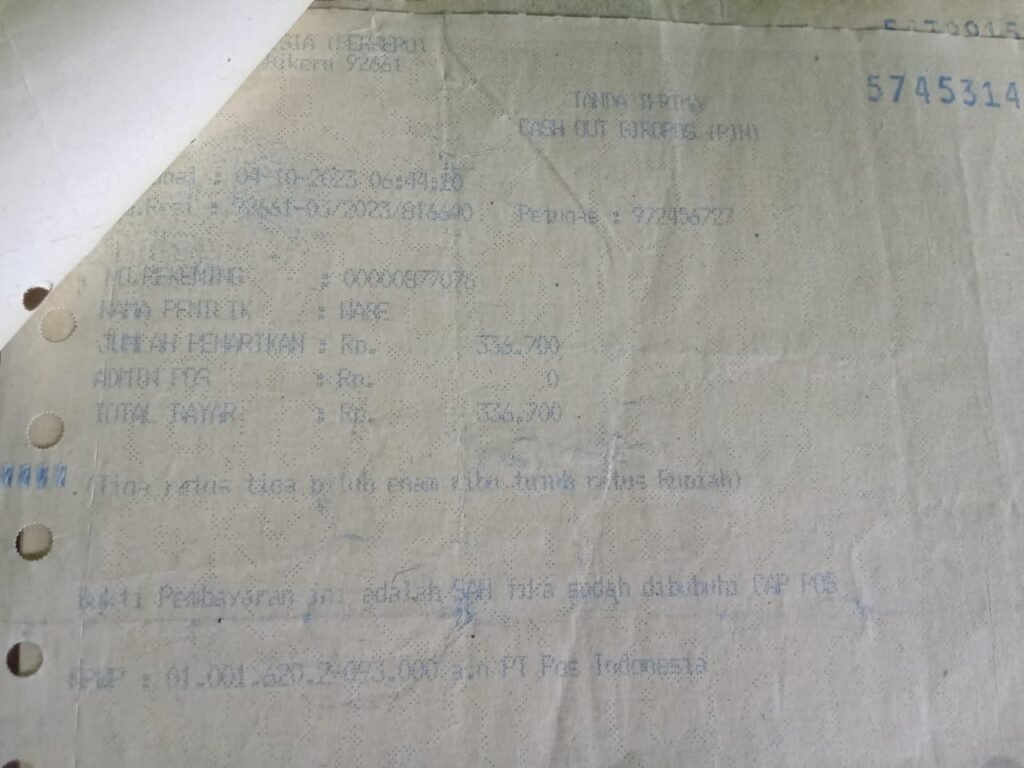 5745314
TANDA TERIMA
CASH OUT GIROPOS (PIN)
: 04-10-2023 06:44:10
Petugas : 972456727
NO.REKENING : 00000877076
NAMA PEMILIK :
JUMLAH PENARIKAN : Rp. 336.700
ADMIN POS : Rp. 0
TOTAL BAYAR : Rp. 336.700
(Tiga ratus tiga puluh enam ribu tujuh ratus Rupiah)
Bukti Pembayaran ini adalah SAH jika sudah dibubuhi CAP POS
NPWP : 01.001.620.2-093.000 a.n PT Pos Indonesia